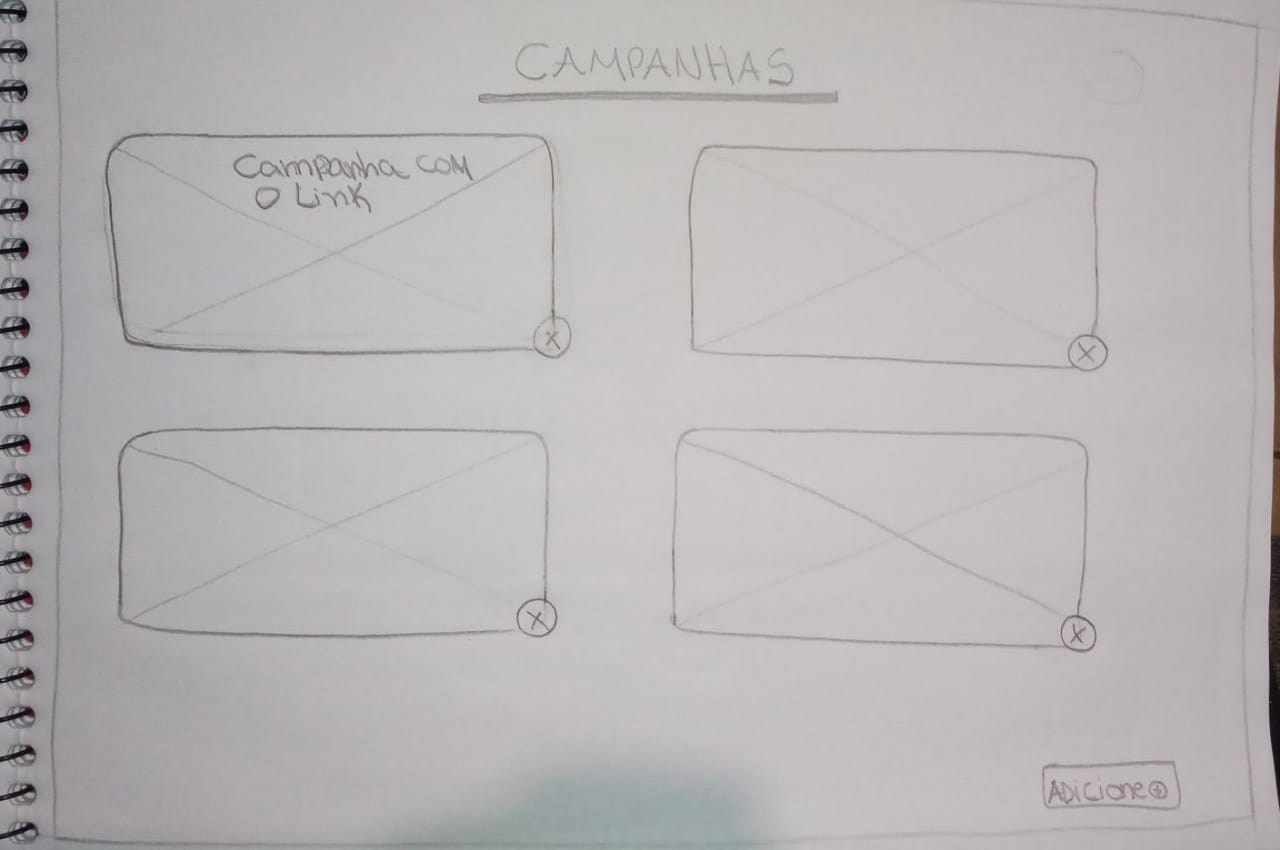 CAMPANHAS
Campanha COM
O Link
ADicione